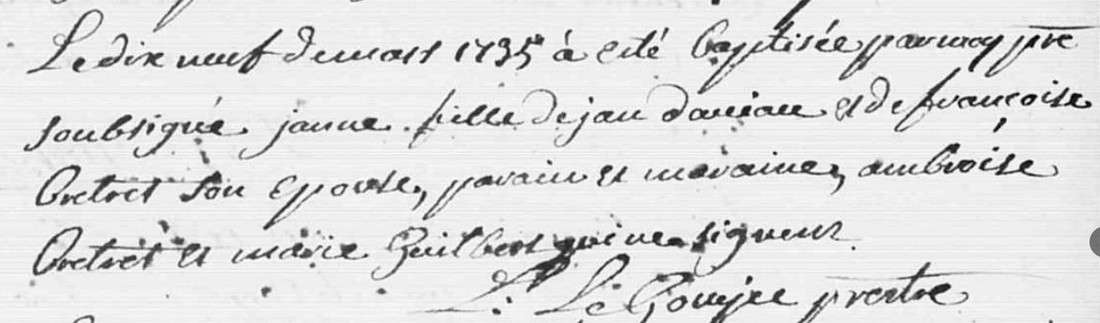 Le dix neuf de mars 1735 à esté baptisée par moy pre
soubsigné janne fille de jan daniau et de francoise
Bretret son epouse, parain et maraine, ambroise
Bretret et marie Guilbert qui ne signent
L. Le prestre